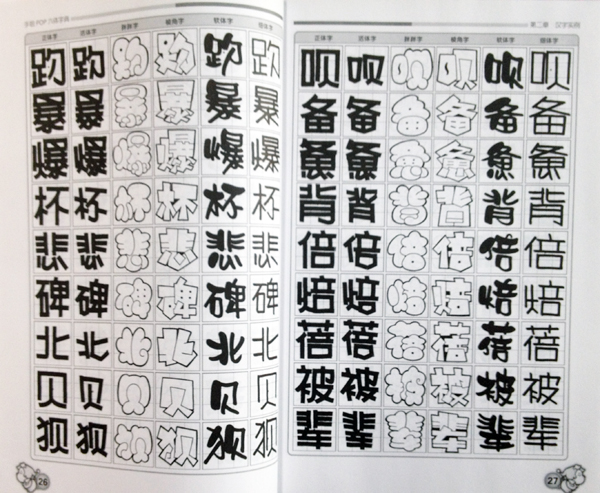 正体字 活体字 胖胖字 棱角字 软体字 细体字
趵 趵 趵 趵 趵 趵
暴 暴 暴 暴 暴 暴
爆 爆 爆 爆 爆 爆
杯 杯 杯 杯 杯 杯
悲 悲 悲 悲 悲 悲
碑 碑 碑 碑 碑 碑
北 北 北 北 北 北
贝 贝 贝 贝 贝 贝
狈 狈 狈 狈 狈 狈
26
第二章 汉字实例
正体字 活体字 胖胖字 棱角字 软体字 细体字
呗 呗 呗 呗 呗 呗
备 备 备 备 备 备
惫 惫 惫 惫 惫 惫
背 背 背 背 背 背
倍 倍 倍 倍 倍 倍
焙 焙 焙 焙 焙 焙
蓓 蓓 蓓 蓓 蓓 蓓
被 被 被 被 被 被
辈 辈 辈 辈 辈 辈
27